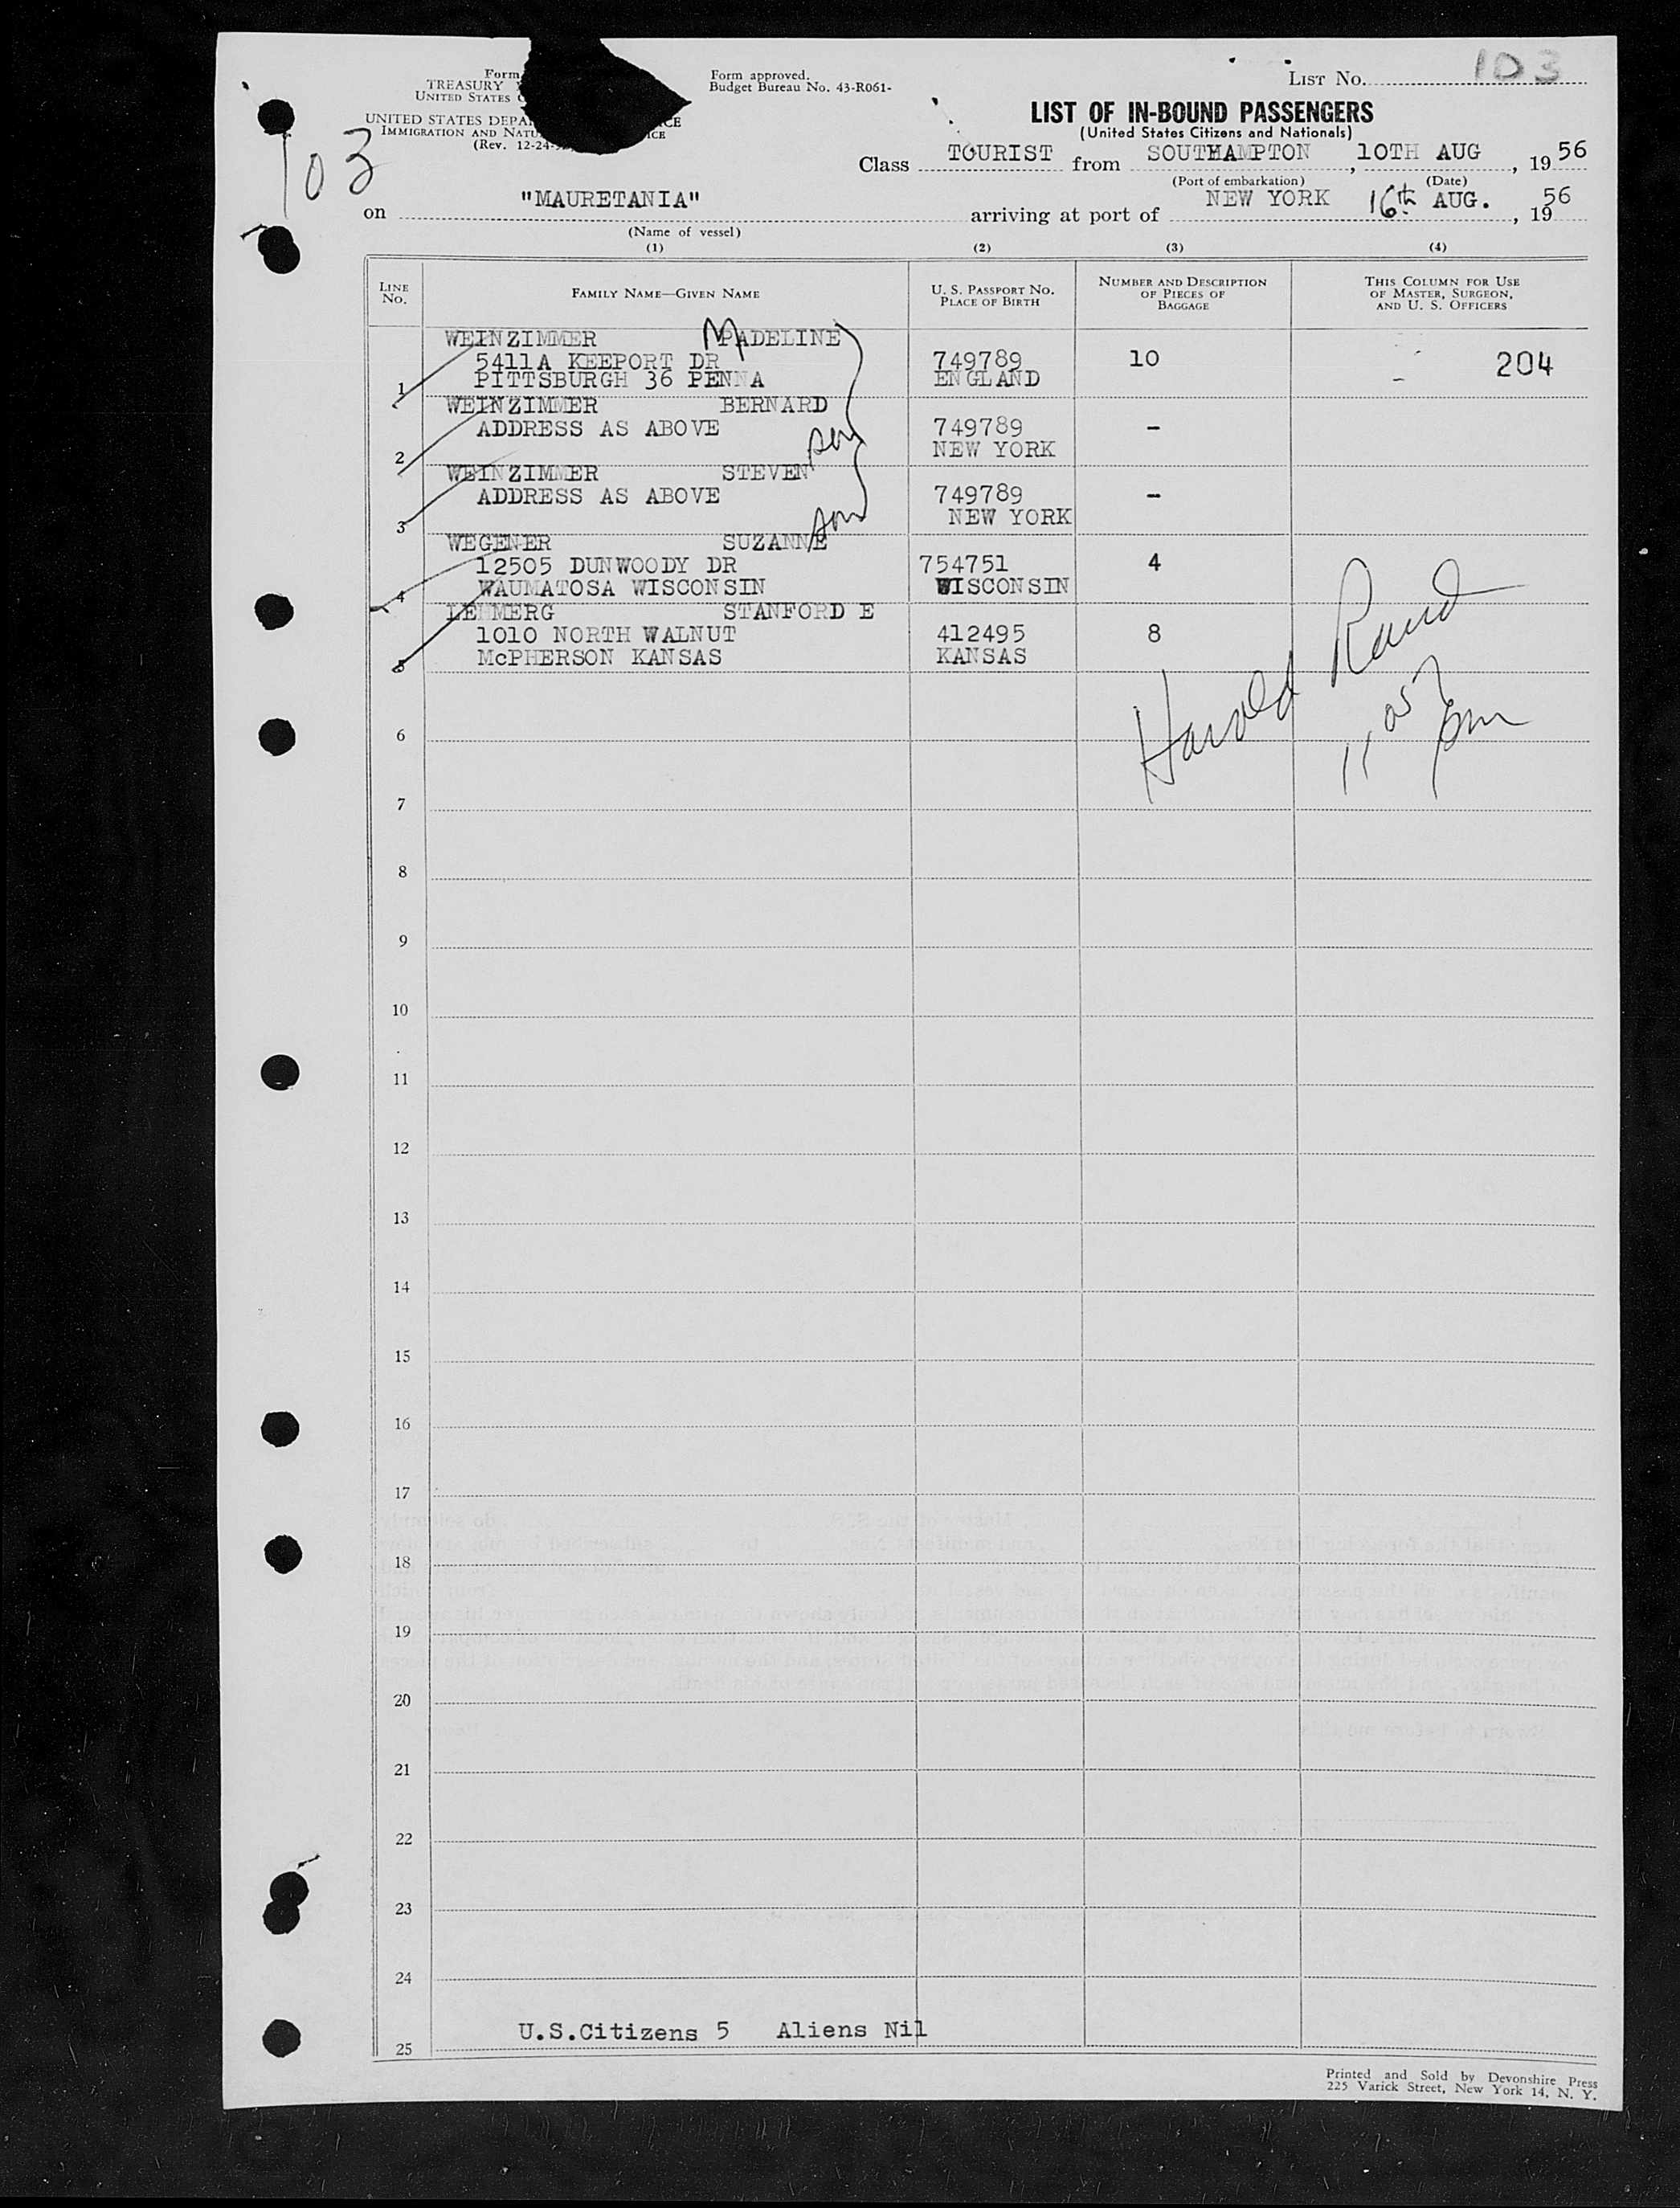 Form
TREASURY
UNITED STATES
UNITED STATES
IMMIGRATION AND
(Rev. 12-24-
Form approved.
Budget Bureau No. 43-R061-
LIST NO. 103
103
LIST OF IN-BOUND PASSENGERS
(United States Citizens and Nationals)
Class TOURIST from SOUTHAMPTON, 10TH AUG, 1956
(Port of embarkation) (Date)
on "MAURETANIA" arriving at port of NEW YORK 16th AUG., 1956
(Name of vessel)
(1) (2) (3) (4)
LINE NO.
FAMILY NAME—GIVEN NAME
U. S. PASSPORT NO.
PLACE OF BIRTH
NUMBER AND DESCRIPTION
OF PIECES OF
BAGGAGE
THIS COLUMN FOR USE
OF MASTER, SURGEON,
AND U. S. OFFICERS
WEINZIMMER MADELINE
5411A KEEPORT DR 749789 10 - 204
1 PITTSBURGH 36 PENNA ENGLAND
WEINZIMMER BERNARD
ADDRESS AS ABOVE son 749789 -
2 NEW YORK
WEINZIMMER STEVEN
ADDRESS AS ABOVE 749789 -
3 son NEW YORK
WEGENER SUZANNE
12505 DUNWOODY DR 754751 4
4 WAUMATOSA WISCONSIN WISCONSIN
LEHMERG STANFORD E
1010 NORTH WALNUT 412495 8
5 McPHERSON KANSAS KANSAS
Harold Rand
11 05 pm
6
7
8
9
10
11
12
13
14
15
16
17
18
19
20
21
22
23
24
U.S.Citizens 5 Aliens Nil
25
Printed and Sold by Devonshire Press
225 Varick Street, New York 14, N. Y.